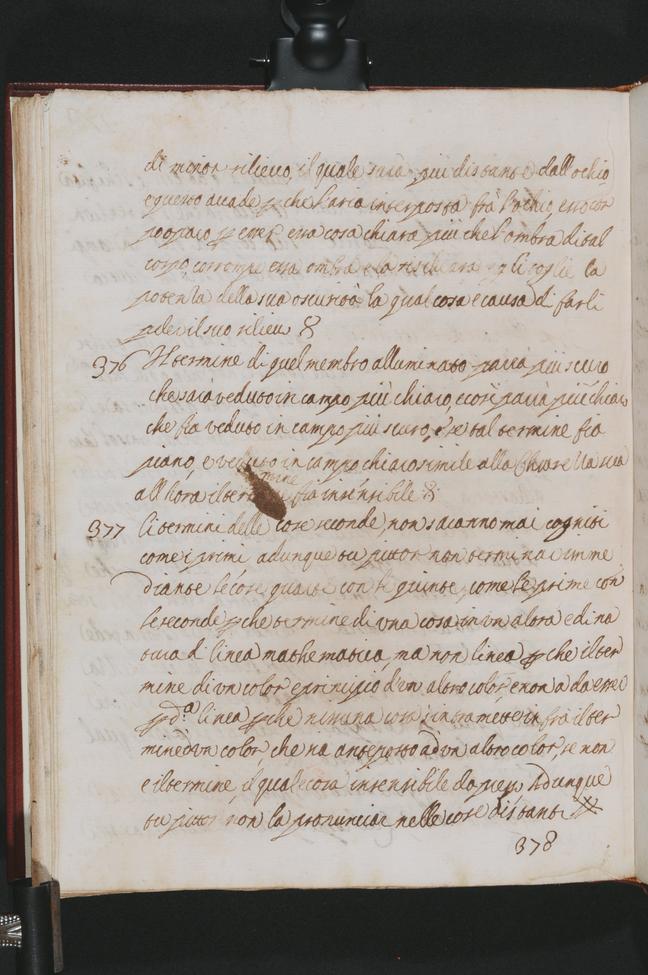 di minor rilievo, il quale sarà più distante dall ochio
e questo accade p che l'aria interposta frà l'ochio, e esso cor
po opaco p esser essa cosa chiara più che l'ombra di tal
corpo, corrompe essa ombra e la rischiara, e gli toglie la
potenza della sua oscurità la qual cosa è causa di farli
perder il suo rilievo
376 Il termine di quel membro alluminato parrà più scuro
che sarà veduto in campo più chiaro, e così parrà più chiaro
che fia veduto in campo più scuro, e se tal termine fia
piano, e veduto in campo chiaro simile alla chiarezza sua
all hora il termine fia insensibile
377 Li termini delle cose seconde non saranno mai cogniti
come i primi adunque tu pittor non terminar imme
diante le cose quarte con le quinte, come le prime con
le seconde p che termine di una cosa in un altra è di na
tura di linea mathematica, ma non linea p che il ter
mine di un color è principio d'un altro color, e non a da esser
p d.ª linea p che niuna cosa s'intramette in frà il ter
mine d'un color, che sia anteposto ad un altro color, se non
è il termine, il qual è cosa insensibile da presso Adunque
tu pittor non la pronunciar nelle cose distanti
378